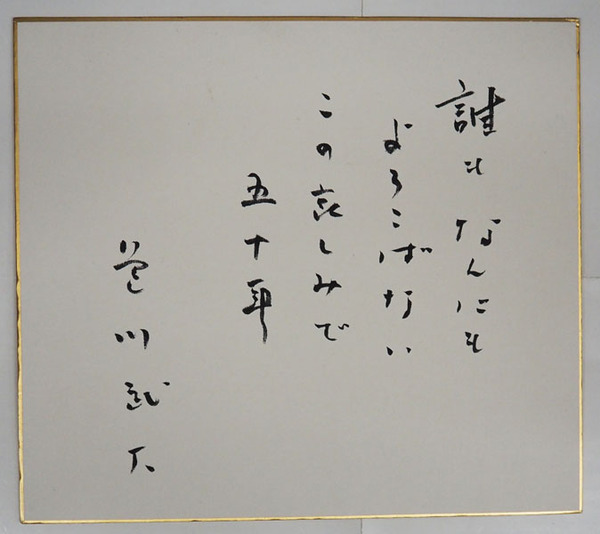 誰も なんにも
よろこばない
この哀しみで
五十年
色川武大